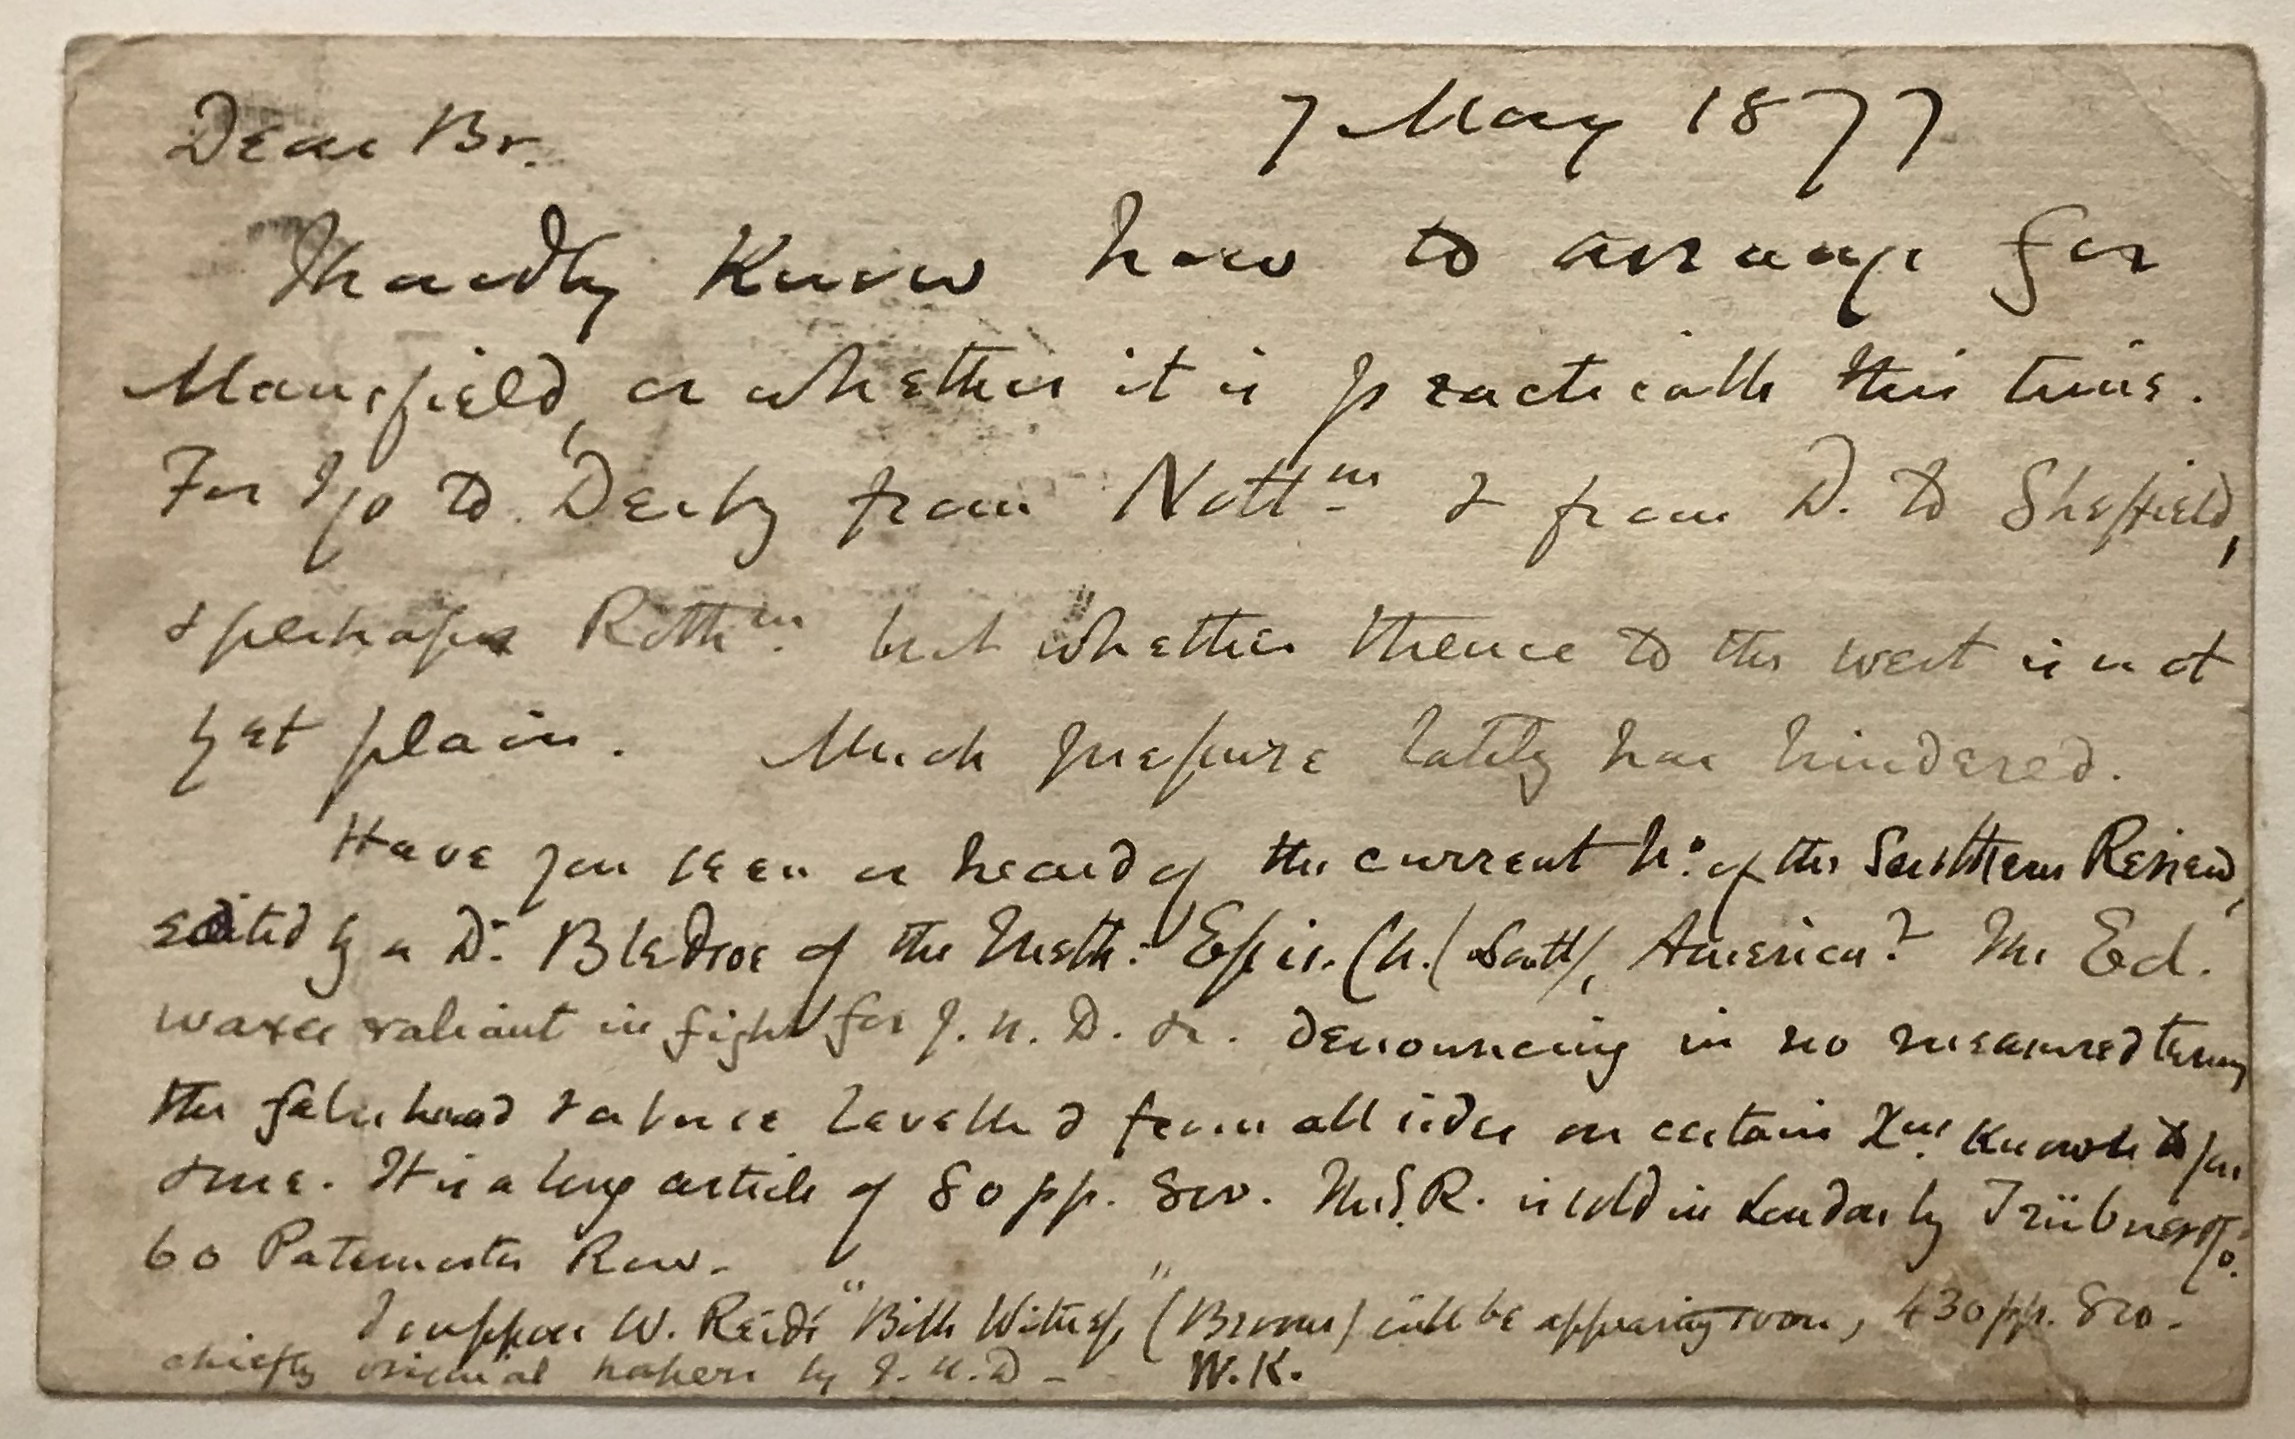 Dear Br. 7 May 1877
I hardly know how to arrange for
Mansfield, or whether it is practicable this time.
For I go to Derby from Nottm & from D. to Sheffield,
& perhaps Rothm. but whether thence to the west is not
yet plain. Much pressure lately has hindered.
Have you seen or heard of the current No. of the Southern Review,
edited by a Dr. Bledsoe of the Meth. Epis. Ch. (South), America? The Ed.
waxes valiant in fight for J.N.D. &c. denouncing in no measured terms
the falsehood & abuse levelled from all sides on certain Xns. known to you
& me. It is a long article of 80 pp. 8vo. The S.R. is sold in London by Trübner & Co.
60 Paternoster Row.
I suppose W. Reid's "Bible Witness" (Broom) will be appearing soon, 430 pp. 8vo.
chiefly original papers by J.N.D. W.K.